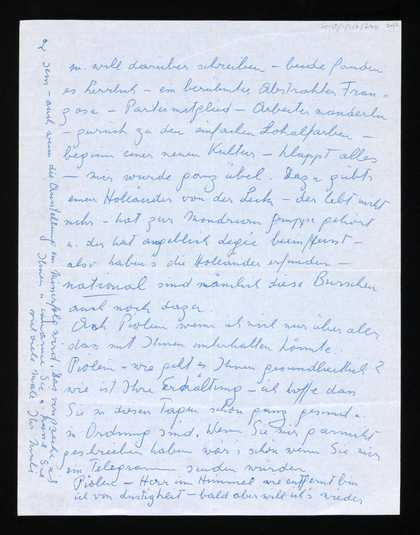 m. will darüber schreiben – beide fanden
es herrlich – ein berühmter abstrakter Fran-
zose – Parteimitglied – Arbeiter wanderten
– zurück zu den einfachen Lokalfarben –
beginn einer neuen Kultur – klappt alles
– mir wurde ganz übel. Dazu gibts
einen Holländer von der Leck – der lebt nicht
mehr – hat zur Mondriaan gruppe gehört
u. der hat angeblich
also haben's die Holländer erfunden –
national sind nämlich diese Burschen
auch noch dazu.
Ach Piolein wenn ich mich nur über alles
das mit Ihnen unterhalten könnte.
Piolein – wie geht es Ihnen gesundheitlich?
wie ist Ihre Erkältung – ich hoffe dass
Sie in diesen Tagen schon ganz gesund u.
in Ordnung sind. Wenn Sie mir garnicht
geschrieben haben wär's schön wenn Sie mir
ein Telegramm senden würden.
Piolein – Herr im Himmel wie entfernt bin
ich von Lustigkeit – bald aber will ich's wieder
sein – auch wenn die Ausstellung ein Misserfolg wird. Das verspreche ich
Ihnen u. umarme Sie u. küsse Sie
viele viele Male Ihr